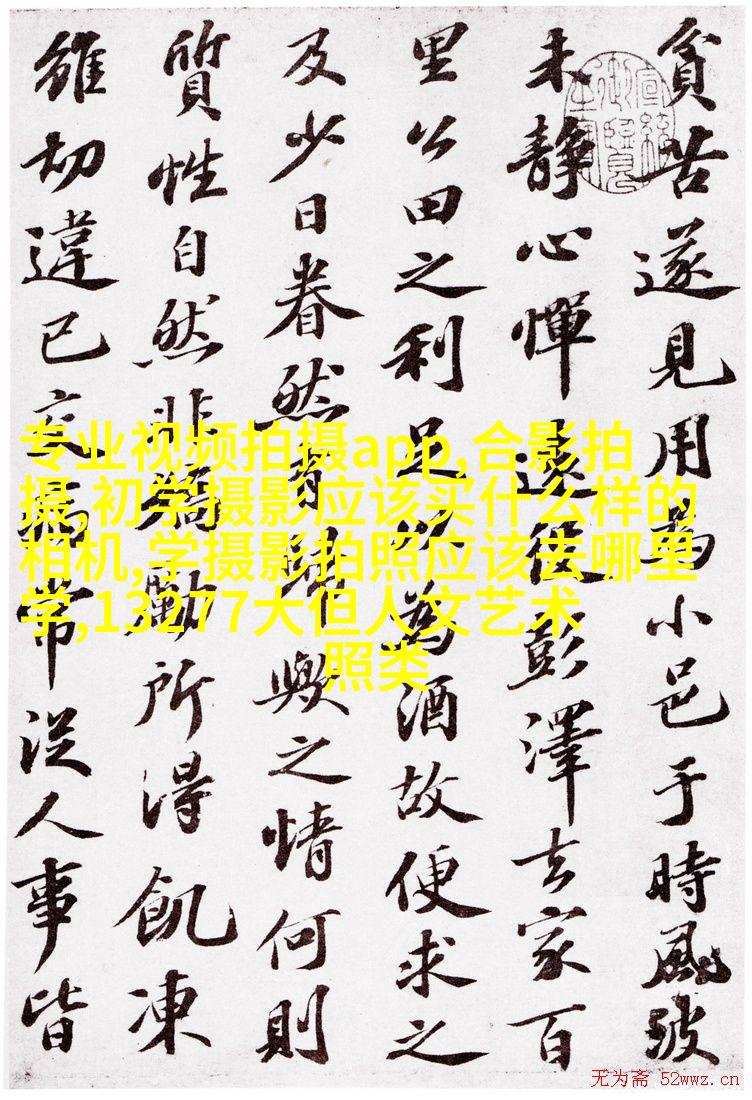 貧苦遂見用為小邑于時風波
未静心憚遠役彭澤去家百
里公田之利足以為酒故便求之
及少日眷然有歸歟之情何則
質性自然非矯勵所得飢凍
雖切違己交病常従人事皆
专业视频拍摄app,合影拍
摄,初学摄影应该买什么样的
相机,学摄影拍照应该去哪里
学,13277大但人文艺术
照类
无为斋 52wwz.cn